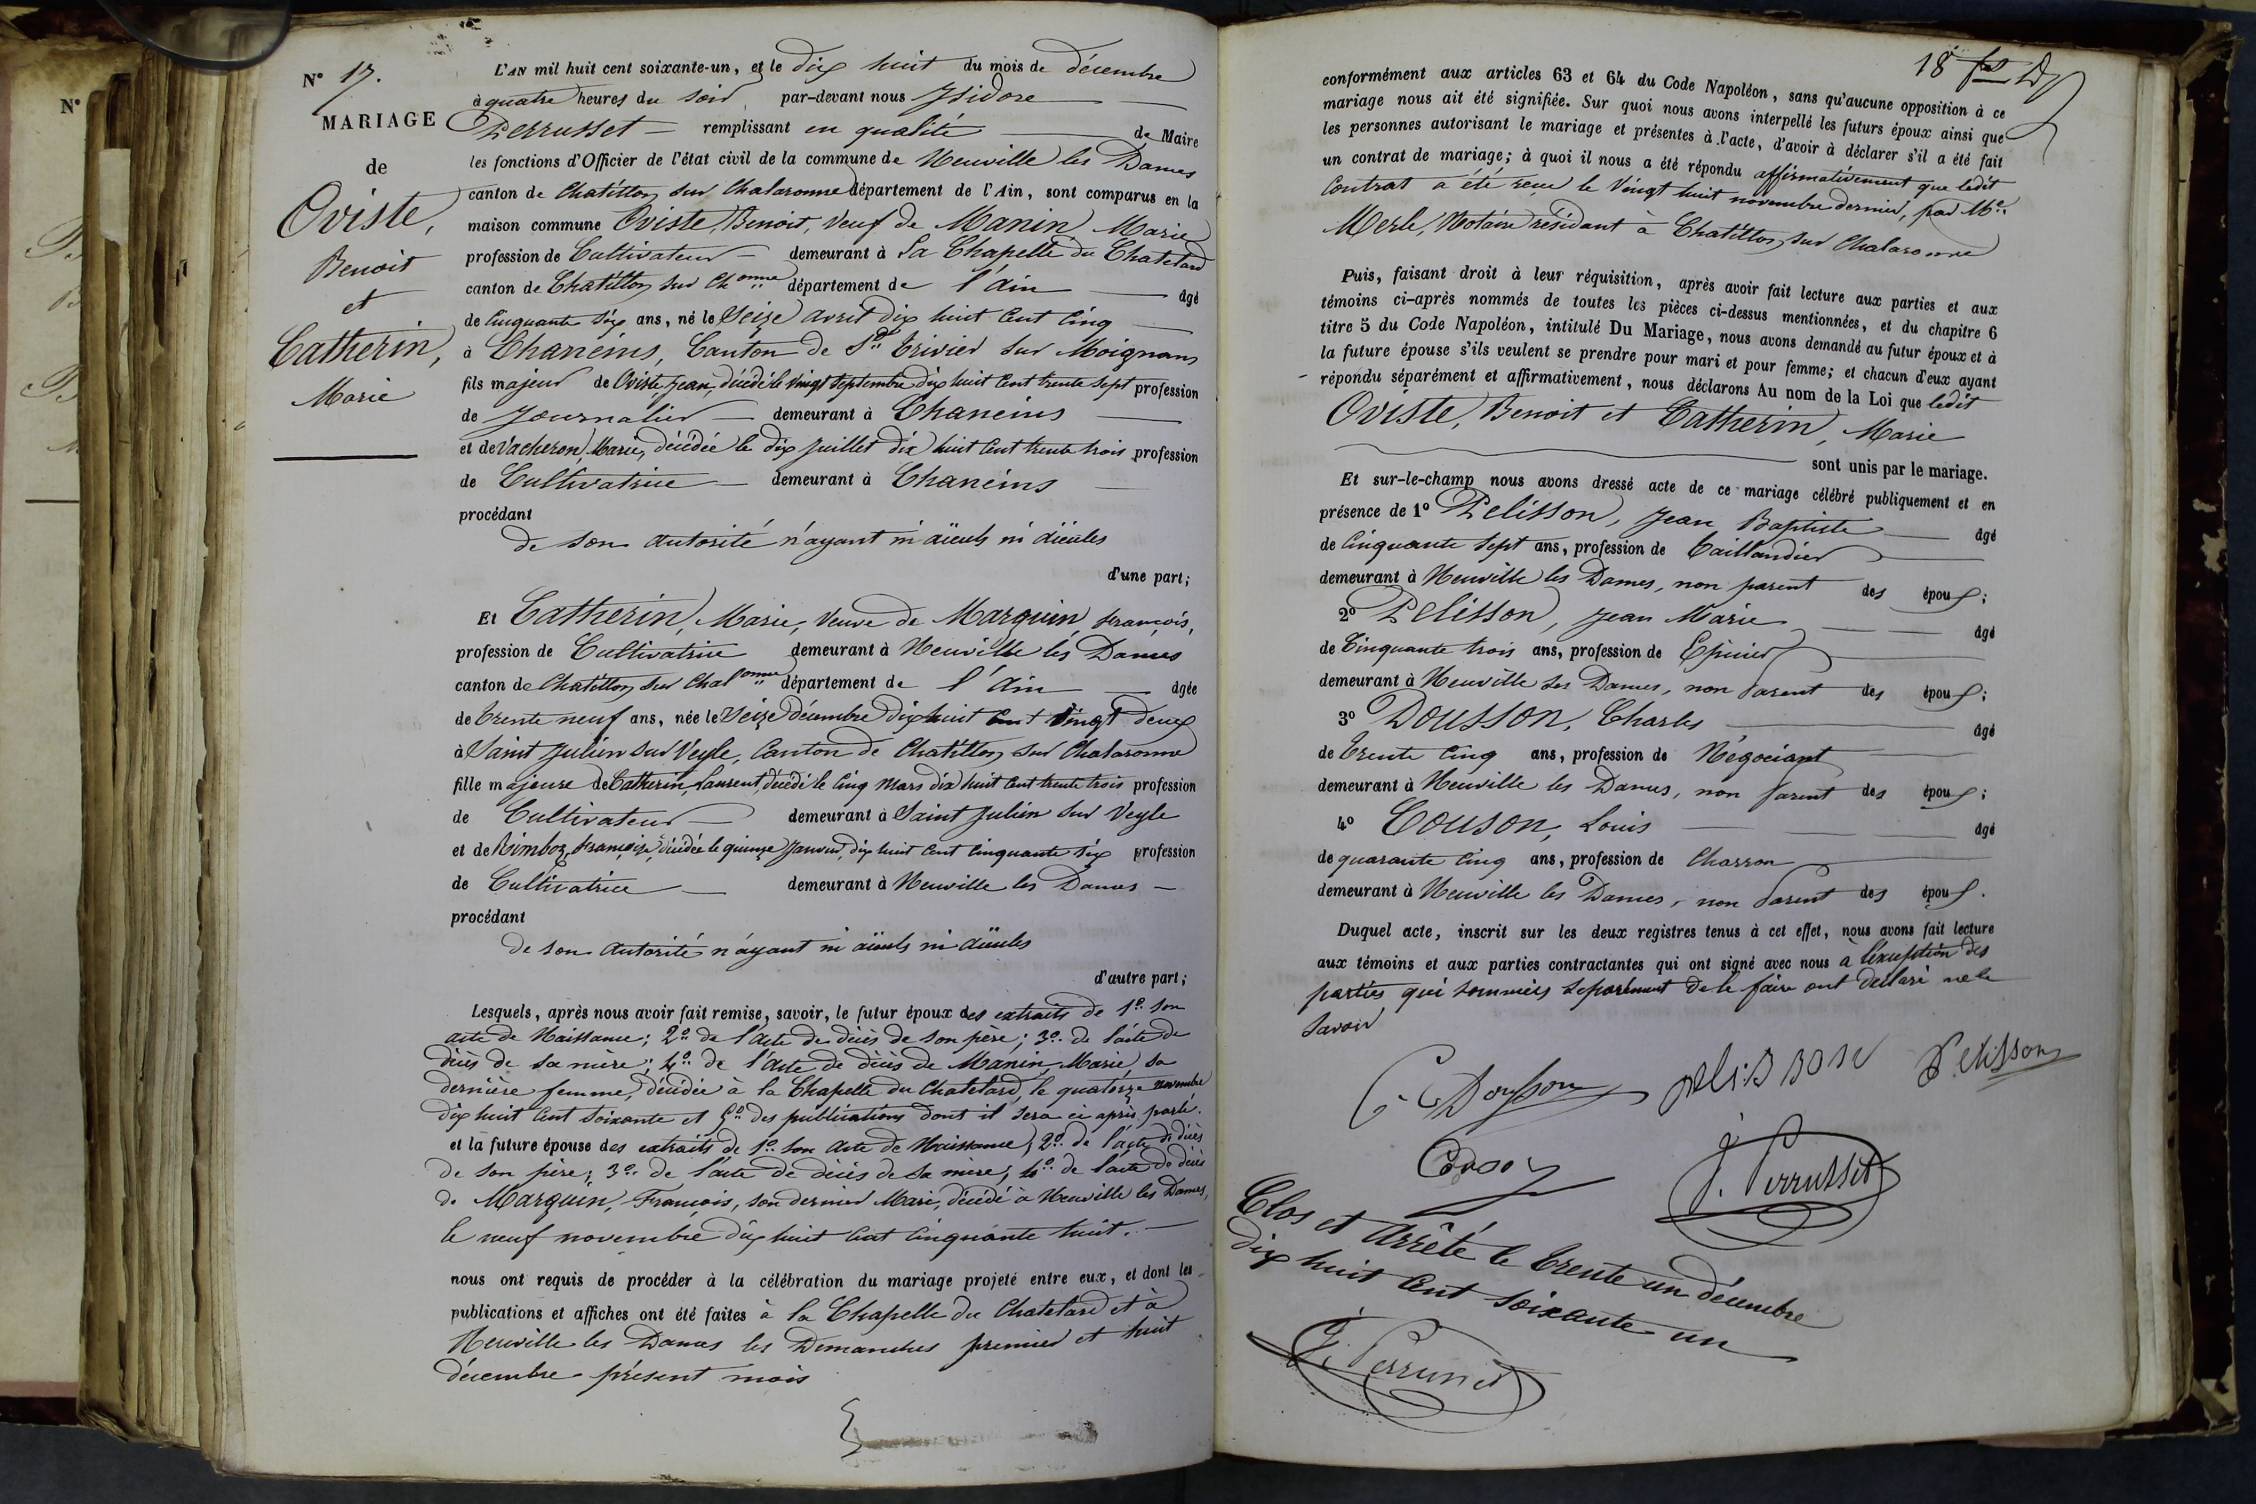 N°
N° 17.
MARIAGE
de
Oviste,
Benoit
et
Catherin,
Marie
L'AN mil huit cent soixante-un, et le dix huit du mois de décembre
à quatre heures du soir, par-devant nous Isidore
Perrusset remplissant en qualité de Maire
les fonctions d'Officier de l'état civil de la commune de Neuville les Dames
canton de Chatillon sur Chalaronne département de l'Ain, sont comparus en la
maison commune Oviste, Benoit, veuf de Manin, Marie
profession de Cultivateur demeurant à La Chapelle du Chatelard
canton de Chatillon sur Chonne département de l'ain âgé
de Cinquante six ans, né le Seize avril dix huit cent cinq
à Chaneins, Canton de St. Trivier sur Moignans
fils majeur de Oviste, Jean, décédé le vingt septembre dix huit cent trente sept profession
de Journalier demeurant à Chaneins
et de Vacheron, Marie, décédée le dix juillet dix huit cent trente trois profession
de Cultivatrice demeurant à Chaneins
procédant
de son autorité n'ayant ni aïeuls ni aïeules
d'une part;
Et Catherin, Marie, veuve de Marguin, françois,
profession de Cultivatrice demeurant à Neuville les Dames
canton de Chatillon sur Chalonne département de l'Ain âgée
de trente neuf ans, née le Seize décembre dix huit cent vingt deux
à Saint Julien sur Veyle, Canton de Chatillon sur Chalaronne
fille majeure de Catherin, Laurent, décédé le cinq mars dix huit cent trente trois profession
de Cultivateur demeurant à Saint Julien sur Veyle
et de Rimboz, françoise, décédée le quinze janvier dix huit cent cinquante six profession
de Cultivatrice demeurant à Neuville les Dames
procédant
de son autorité n'ayant ni aïeuls ni aïeules
d'autre part;
Lesquels, après nous avoir fait remise, savoir, le futur époux des extraits de 1° son
acte de Naissance; 2° de l'acte de décès de son père; 3° de l'acte de
décès de sa mère; 4° de l'acte de décès de Manin, Marie, sa
dernière femme, décédée à la Chapelle du Chatelard, le quatorze novembre
dix huit cent soixante et 5° des publications dont il sera ci après parlé.
et la future épouse des extraits de 1° son acte de Naissance; 2° de l'acte de décès
de son père; 3° de l'acte de décès de sa mère; 4° de l'acte de décès
de Marguin, François, son dernier Mari, décédé à Neuville les Dames,
le neuf novembre dix huit cent cinquante huit.
nous ont requis de procéder à la célébration du mariage projeté entre eux, et dont les
publications et affiches ont été faites à la Chapelle du Chatelard et à
Neuville les Dames les Dimanches premier et huit
décembre présent mois
18
conformément aux articles 63 et 64 du Code Napoléon, sans qu'aucune opposition à ce
mariage nous ait été signifiée. Sur quoi nous avons interpellé les futurs époux ainsi que
les personnes autorisant le mariage et présentes à l'acte, d'avoir à déclarer s'il a été fait
un contrat de mariage; à quoi il nous a été répondu affirmativement que ledit
Contrat a été reçu le vingt huit novembre dernier, par Me.
Merle, Notaire résidant à Chatillon sur Chalaronne
Puis, faisant droit à leur réquisition, après avoir fait lecture aux parties et aux
témoins ci-après nommés de toutes les pièces ci-dessus mentionnées, et du chapitre 6
titre 5 du Code Napoléon, intitulé Du Mariage, nous avons demandé au futur époux et à
la future épouse s'ils veulent se prendre pour mari et pour femme; et chacun d'eux ayant
répondu séparément et affirmativement, nous déclarons Au nom de la Loi que ledit
Oviste, Benoit et Catherin, Marie
sont unis par le mariage.
Et sur-le-champ nous avons dressé acte de ce mariage célébré publiquement et en
présence de 1° Pelisson, Jean Baptiste âgé
de Cinquante sept ans, profession de Taillandier
demeurant à Neuville les Dames, non parent des époux;
2° Pelisson, Jean Marie âgé
de Cinquante trois ans, profession de Epicier
demeurant à Neuville les Dames, non parent des époux;
3° Dousson, Charles âgé
de trente cinq ans, profession de Négociant
demeurant à Neuville les Dames, non parent des époux;
4° Couson, Louis âgé
de quarante cinq ans, profession de Charron
demeurant à Neuville les Dames, non parent des époux.
Duquel acte, inscrit sur les deux registres tenus à cet effet, nous avons fait lecture
aux témoins et aux parties contractantes qui ont signé avec nous à l'exception des
parties qui sommées séparément de le faire ont déclaré ne le
savoir
C Dousson pelisson Pelisson
J. Perrusset
Clos et Arrêté le trente un décembre
dix huit cent soixante un
J. Perrusset